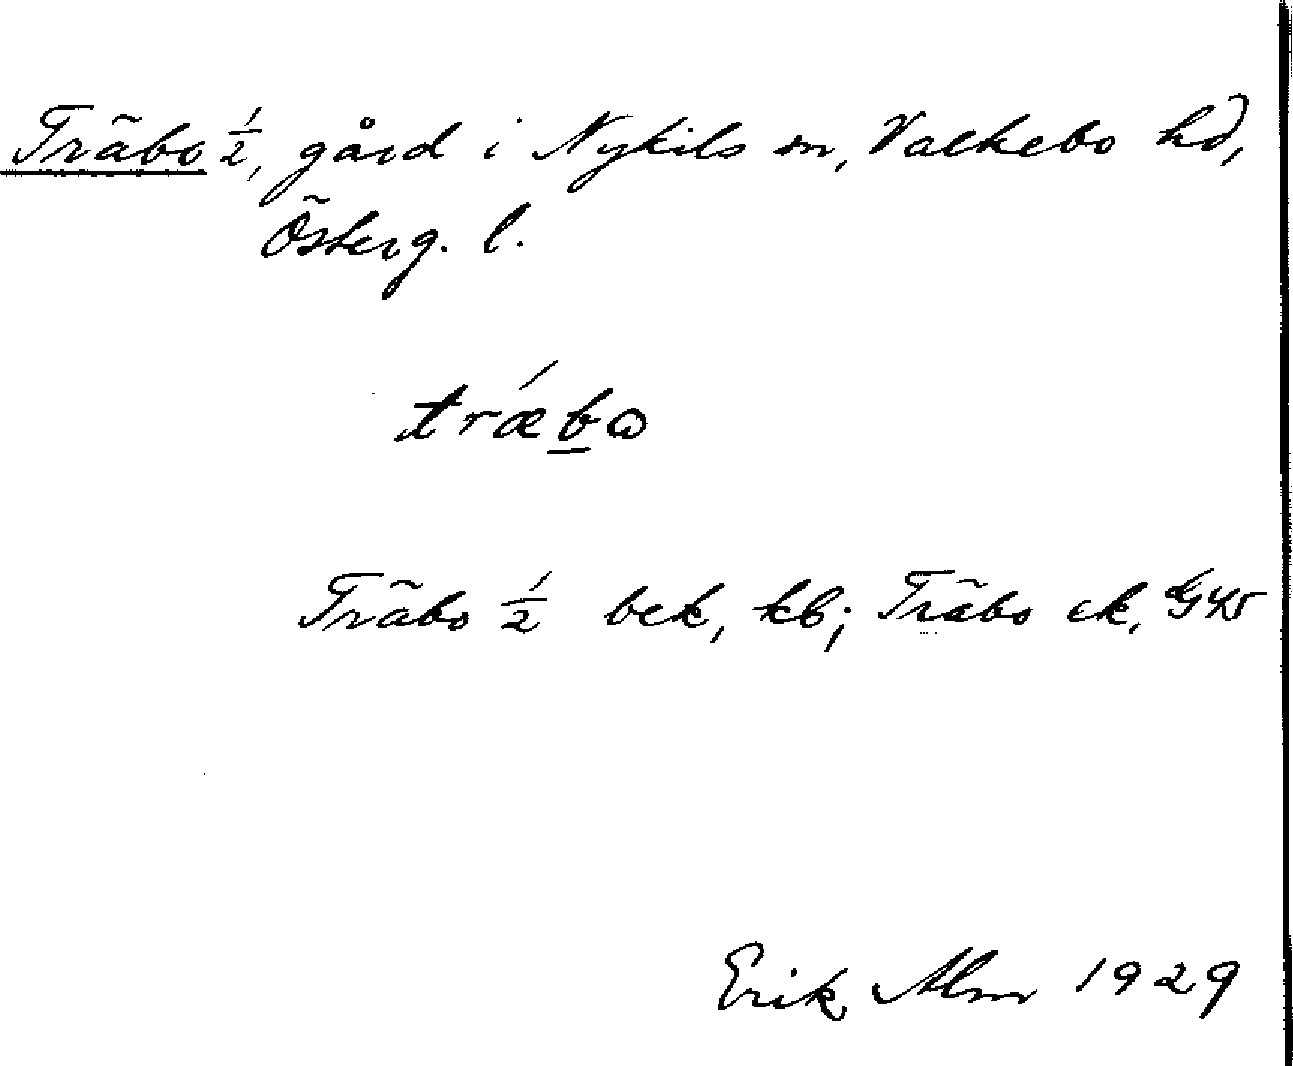 Träbo ½, gård i Nykils sn, Valkebo hd,
Österg. l.
trǽbω
Träbo ½ bek, kb; Träbo ek,
Erik Alm 1929